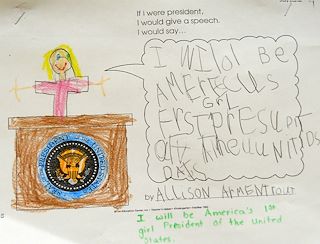 If i were president,
I would give a speech.
I would say...
I Will BE
AMERECUS
GrL
FrSTPreSUDENT
OFV TheUUNITIDS
DATS
by ALLISON ARMENTROUT
I will be America's 1st
girl President of the United
States.